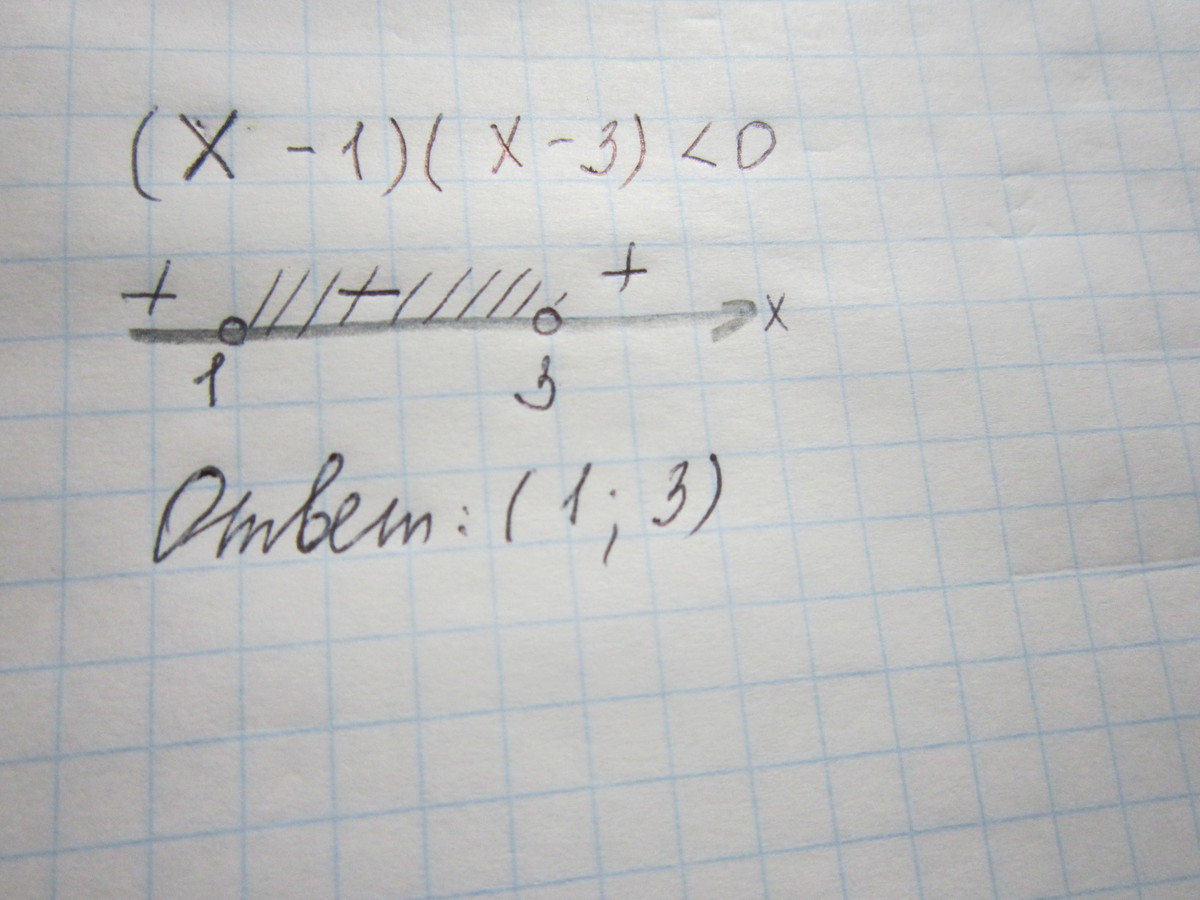 (x - 1)(x - 3) < 0
+ - +
x
1 3
Ответ: (1; 3)